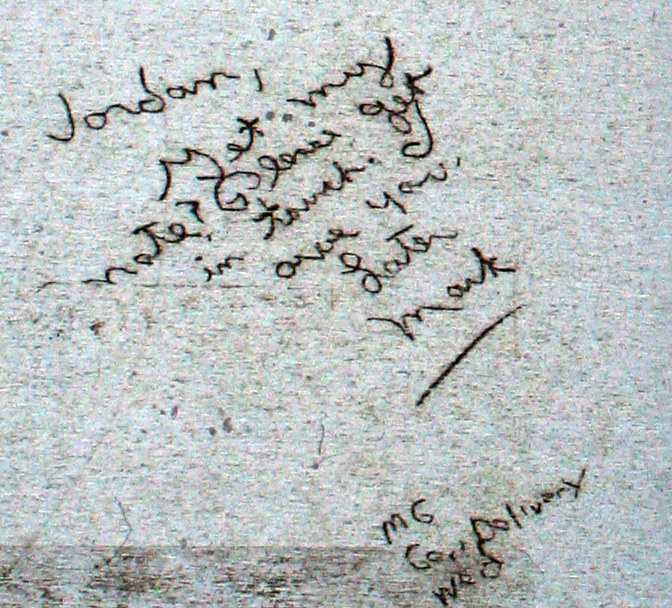 Jordan,
Met my
note? Please get
in touch.
are you.
Later
Mark
MG
Delivery
Wed